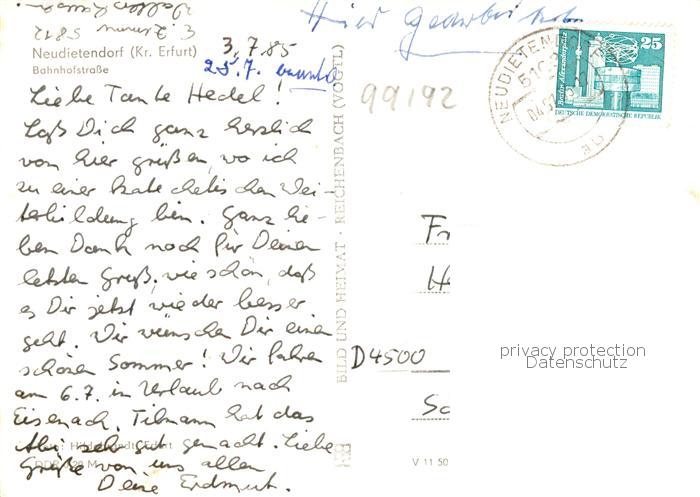 Hier
Neudietendorf (Kr. Erfurt)
Bahnhofstraße
3.7.85
25.7.
99/92
Liebe Tante Hedel!
Laß Dich ganz herzlich
von hier grüßen, wo ich
zu einer katechetischen Wei-
terbildung bin. Ganz lie-
ben Dank noch für Deinen
letzten Gruß, wie schön, daß
es Dir jetzt wieder besser
geht. Wir wünschen Dir einen
schönen Sommer! Wir fahren
am 6.7. in Urlaub nach
Eisenach. Tilmann hat das
Abi sehr gut gemacht. Liebe
Grüße von uns allen
Deine Erdmut.
BILD UND HEIMAT · REICHENBACH (VOGTL)
NEUDIETENDORF
25
Berlin-Alexanderplatz
DEUTSCHE DEMOKRATISCHE REPUBLIK
Fr
He
D4500
Sc
V 11 50
privacy protection
Datenschutz